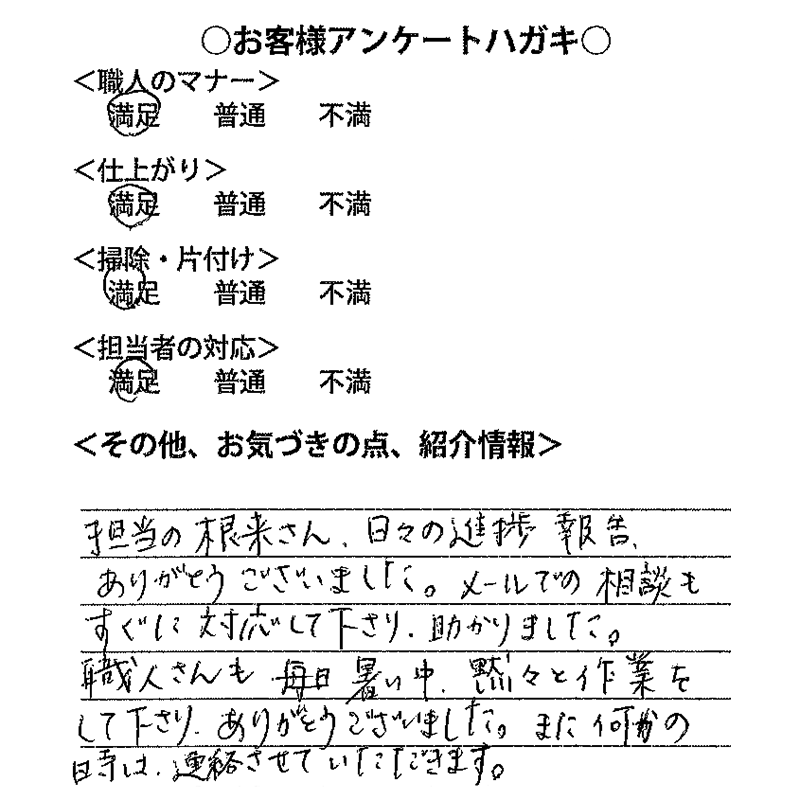 ○お客様アンケートハガキ○
＜職人のマナー＞
満足 普通 不満
＜仕上がり＞
満足 普通 不満
＜掃除・片付け＞
満足 普通 不満
＜担当者の対応＞
満足 普通 不満
＜その他、お気づきの点、紹介情報＞
担当の根来さん、日々の進捗報告、
ありがとうございました。メールでの相談も
すぐに対応して下さり、助かりました。
職人さんも毎日暑い中、黙々と作業を
して下さり、ありがとうございました。また何かの
時は、連絡させていただきます。